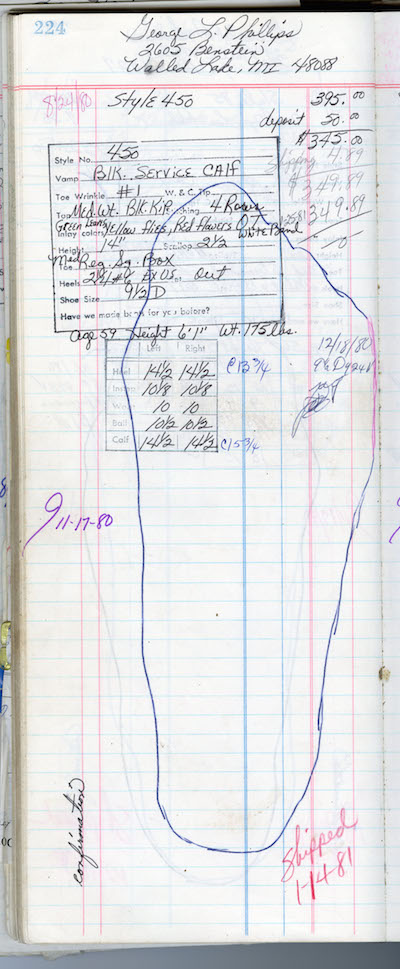 224
George L. Phillips
2605 Benstein
Walled Lake, MI 48088
8/24/80 Style 450 395.00
deposit 50.00
$345.00
Shipping 4.89
$349.89
349.89
-0-
Style No. 450
Vamp Blk. Service Calf
Toe Wrinkle #1 W. & C. Tip
Top Med. Wt. Blk. Kip Stitching 4 Rows
Green Leaves Yellow Red Flowers
Inlay colors White Band
Height 14" Scallop 2 1/2
Toe Med Reg. Sq. Box
Heels Out
Shoe Size 9 1/2 D
Have we made boots for you before?
Age 59 Height 6'1" Wt. 175 lbs.
12/18/80
Left Right
Heel 14 1/2 14 1/2 C13 3/4
Instep 10 1/8 10 1/8
Waist 10 10
Ball 10 1/2 10 1/2
Calf 14 1/2 14 1/2 C15 3/4
9 11-17-80
confirmation
Shipped
1-14-81